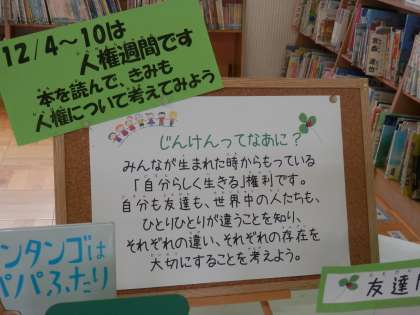 12/4～10は
人権週間です
本を読んで、きみも
人権について考えてみよう
じんけんってなあに？
みんなが生まれた時からもっている
「自分らしく生きる」権利です。
自分も友達も、世界中の人たちも、
ひとりひとりが違うことを知り、
それぞれの違い、それぞれの存在を
大切にすることを考えよう。
ンタンゴは
パパふたり
友達